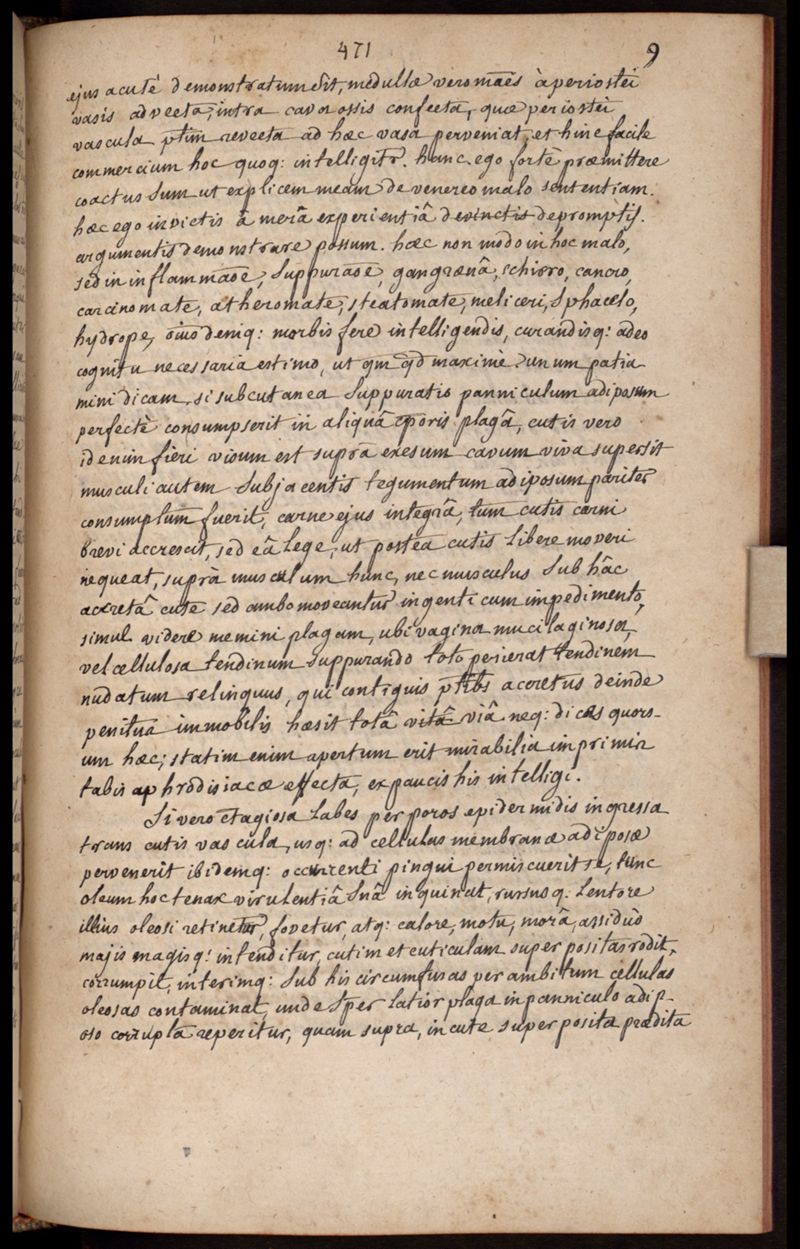 471 9
ejus acutè demonstratum sit, medullæ vero māes à periostei
vasis advecta, intra cava ossis confecta, quæ periostei
vascula ptim revecta ad hæc vasa perveniat, et hinc facile
commercium hoc quoq: intelligitr. hanc ego fortè præmittere
coactus sum ut explicem meam de venereo malo sententiam.
hæc ego invictis â merâ experientiâ devinctis depromptis.
argumentis demonstrare possum. hæc non modo in hoc malo,
sed in inflammaōe, suppuraōe, gangrænâ, schirro, cancro,
carcinomate, atheromate, steatomate, meliceri, sphacelo,
hydrope, oīno deniq: morbis fere intelligendis, curandisq: adeo
cognitu necessaria estimo, ut qm qd maximè. unum patia
mini dicam, si subcutanea suppuratio panniculum adiposum
perfectè consumpserit in aliquâ cporis plagâ, cutis vero
id enim fieri visum est suprâ exesum cavum viva supersit
musculi autem subjacentis tegumentum adiposum pariter
consumptum fuerit, carne ejus integrâ, tum cutis carni
brevi accrescit, sed eâ lege, ut posteâ cutis libere moveri
nequeat, suprà musculum hunc, nec musculus sub hâc
accretâ cute sed ambo moveantur ingenti cum impedimento,
simul videre memini plagam, ubi vagina mucilaginosa,
vel cellulosa tendinum suppurando toto perierat tendinem
nudatum relinquus, qui contiguis ptibs accretus deinde
penitus immobilis hæsit totâ vitâ viâ neq: dicas quors-
um hæc; statim enim apertum erit mirabilia imprimis
tabis aphrodisiacæ effecta, ex paucis his intelligi.
Si vero ctagiosa labes per poros epidermidis ingressa
trans cutis vascula, usq: ad cellulas membranæ adiposæ
pervenerit ibidemq: occurrenti pingui permiscuerit se, tunc
oleum hoc tenax virulentiâ suâ inquinat, rursusq. lentore
illius oleosi retinetur, fovetur, atq: calore, motu, morâ, assiduo
majis magisq: intenditur, cutim et cuticulam superpositas rodit,
corrumpit, interimq: sub his circumfusas per ambitum cellulas
oleosas contaminat, unde sper latior plaga in panniculo adip-
oso corrupta reperitur, quam supra, in cute superposita prædita